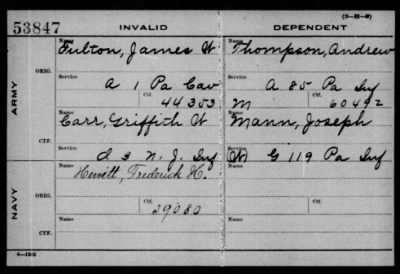 (3—22—9)
53847 INVALID DEPENDENT
ARMY
ORIG.
Name Fulton, James W Name Thompson, Andrew
Service A 1 Pa Cav Service A 85 Pa Inf
Ctf. 44353 M Ctf. 60492
CTF.
Name Carr, Griffith W Name Mann, Joseph
Service I 3 N. J. Inf Service M G 119 Pa Inf
NAVY
ORIG.
Name Hewitt, Frederick H. Name
Ctf. 29080 Ctf.
CTF.
Name Name